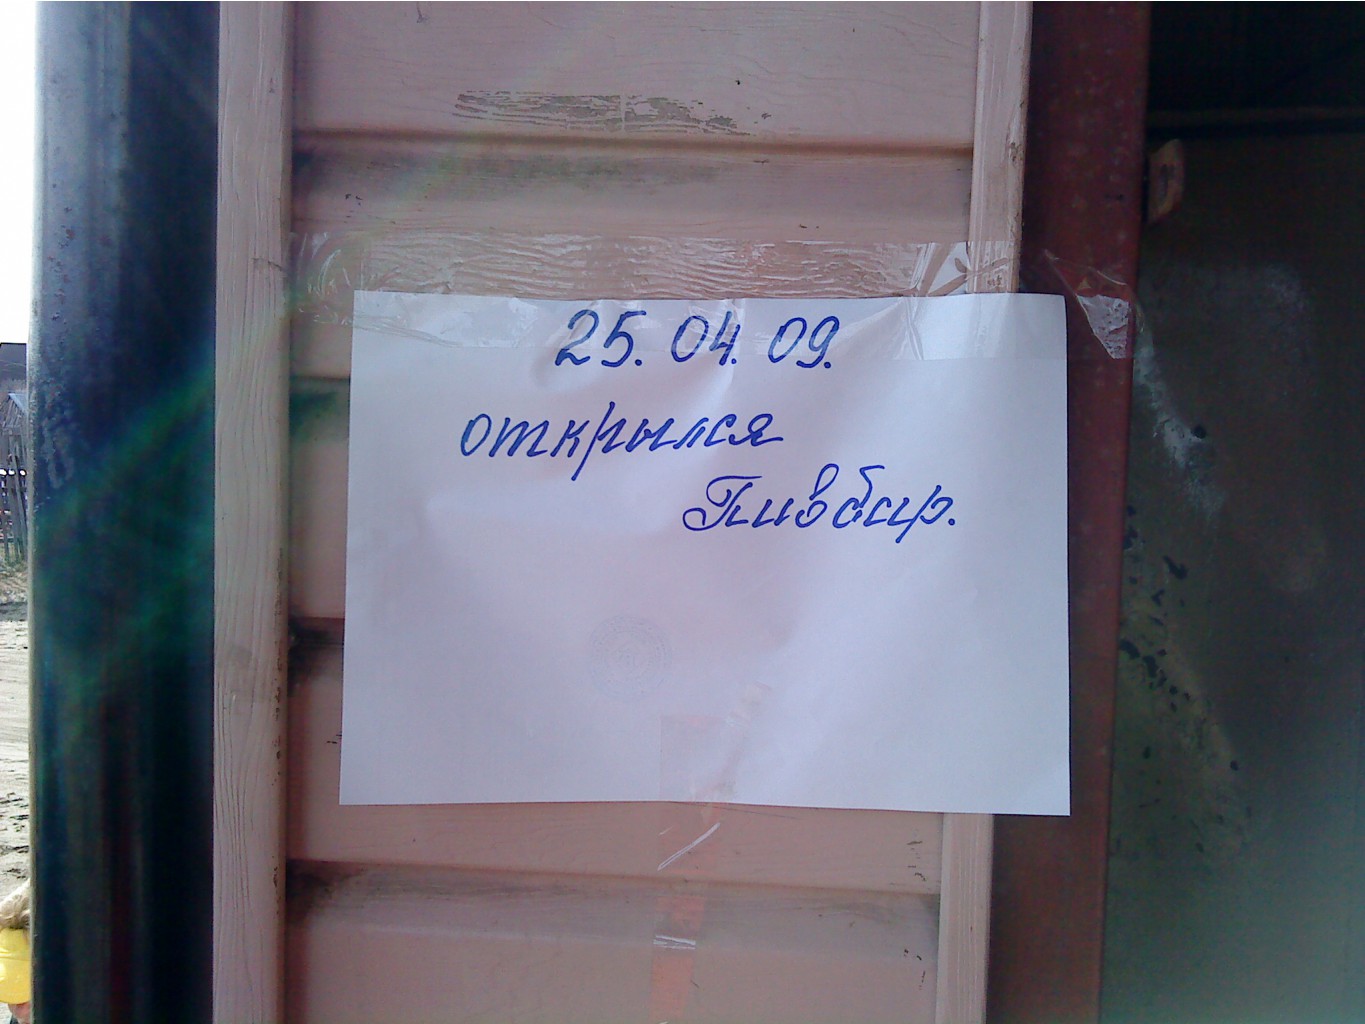 25. 04. 09.
открылся
Пивбир.